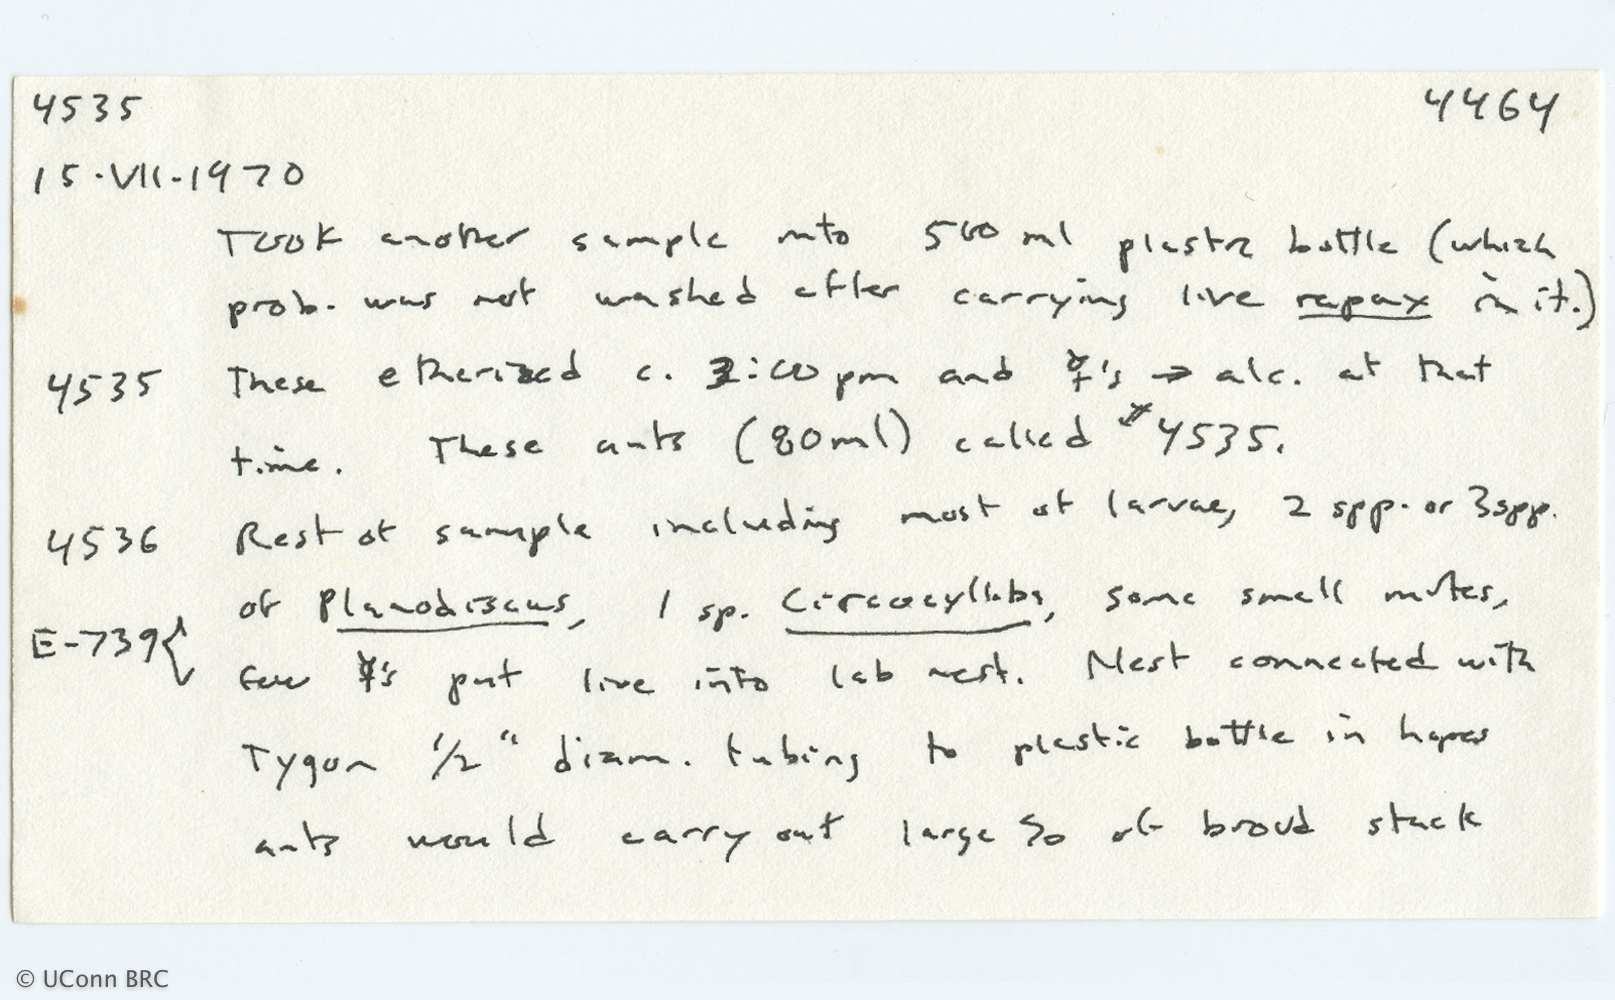 4535 4464
15·VII·1970
Took another sample into 500 ml plastic bottle (which
prob. was not washed after carrying live rapax in it.)
4535 These etherized c. 2:00 pm and ☿'s → alc. at that
time. These ants (80ml) called #4535.
4536 Rest of sample including most of larvae, 2 spp. or 3 spp.
of Planodiscus, 1 sp. Circocyllibs, some small mites,
E-739{ few ☿'s put live into lab nest. Nest connected with
Tygon 1/2" diam. tubing to plastic bottle in hopes
ants would carry out large % of brood stuck
© UConn BRC